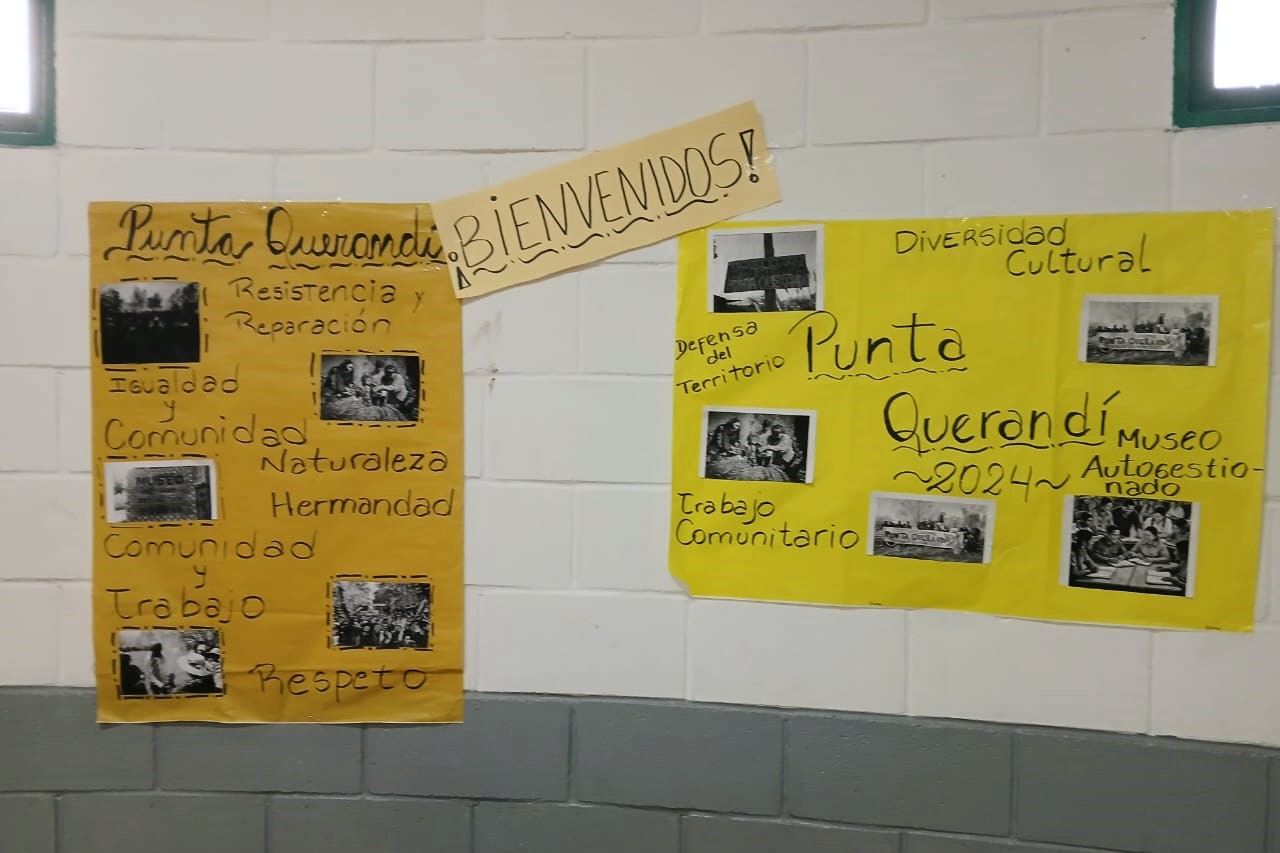 Punta Querandí
Resistencia y
Reparación
Igualdad
y
Comunidad
Naturaleza
MUSEO
Hermandad
Comunidad
y
Trabajo
Respeto
¡BIENVENIDOS!
Diversidad
Cultural
Defensa
del
Territorio
Punta
Querandí
~2024~
Museo
Autogestio-
nado
Trabajo
Comunitario
PUNTA QUERANDÍ
PUNTA QUERANDÍ